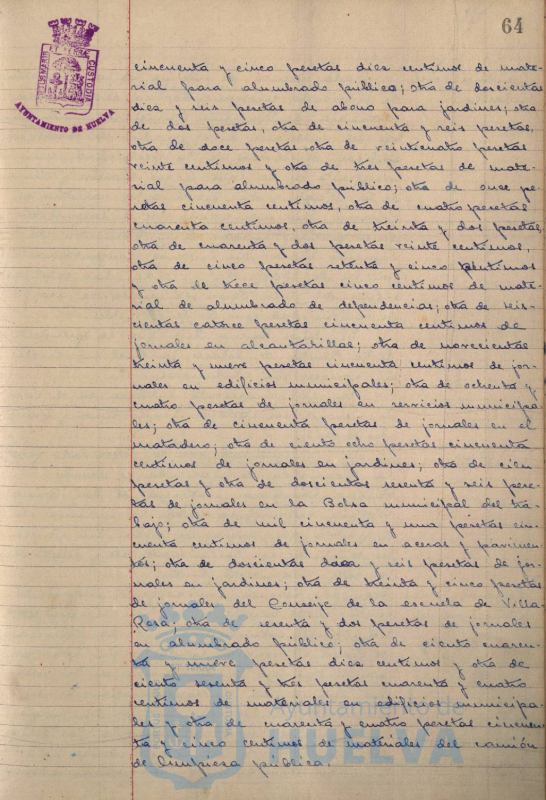 64
PORTUS MARIS ET TERRAE CUSTODIA
AYUNTAMIENTO DE HUELVA
cincuenta y cinco pesetas diez centimos de mate-
rial para alumbrado público; otra de doscientas
diez y seis pesetas de abono para jardines; otra
de dos pesetas, otra de cincuenta y seis pesetas,
otra de doce pesetas otra de veinticuatro pesetas
veinte centimos y otra de tres pesetas de mate-
rial para alumbrado público; otra de once pe-
setas cincuenta centimos, otra de cuatro pesetas
cuarenta centimos, otra de treinta y dos pesetas,
otra de cuarenta y dos pesetas veinte centimos,
otra de cinco pesetas setenta y cinco centimos
y otra de trece pesetas cinco centimos de mate-
rial de alumbrado de dependencias; otra de seis-
cientas catorce pesetas cincuenta centimos de
jornales en alcantarillas; otra de novecientas
treinta y nueve pesetas cincuenta centimos de jor-
nales en edificios municipales; otra de ochenta y
cuatro pesetas de jornales en servicios municipa-
les; otra de cincuenta pesetas de jornales en el
matadero; otra de ciento ocho pesetas cincuenta
centimos de jornales en jardines; otra de cien
pesetas y otra de doscientas sesenta y seis pese-
tas de jornales en la Bolsa municipal del tra-
bajo; otra de mil cincuenta y una pesetas cin-
cuenta centimos de jornales en aceras y pavimen-
tos; otra de doscientas diez y seis pesetas de jor-
nales en jardines; otra de treinta y cinco pesetas
de jornales del Conserje de la escuela de Villa-
Rosa; otra de sesenta y dos pesetas de jornales
en alumbrado público; otra de ciento cuaren-
ta y nueve pesetas diez centimos y otra de
ciento sesenta y tres pesetas cuarenta y cuatro
centimos de materiales en edificios municipa-
les y otra de cuarenta y cuatro pesetas cincuen-
ta y cinco centimos de materiales del camión
de limpieza pública.
Ayuntamiento de
HUELVA